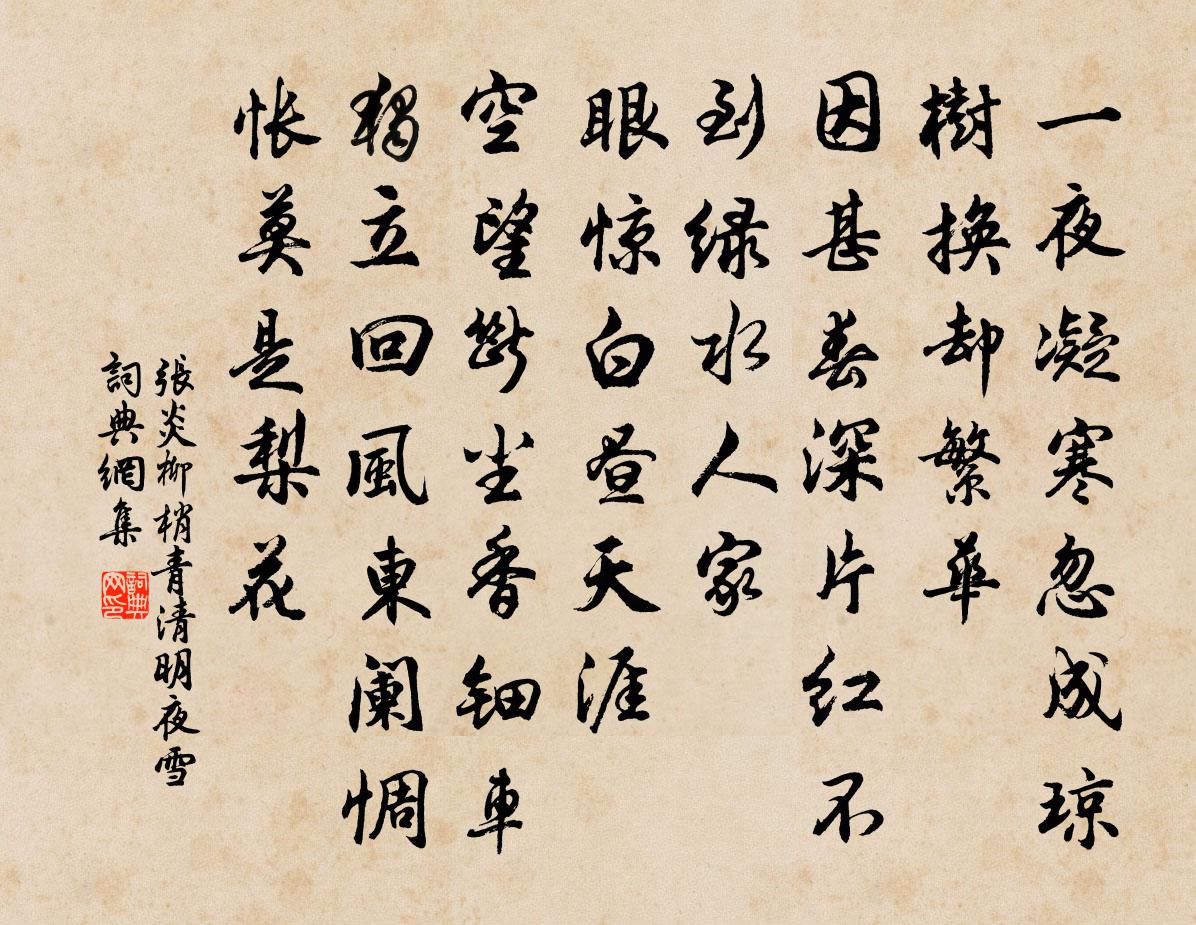 一夜凝寒忽成琼
樹換却繁華
因甚春深片红不
到绿水人家
眼惊白昼天涯
空望断尘香钿車
獨立回風東阑惆
怅莫是梨花
張炎柳梢青清明夜雪
詞典網集
詞典
网印